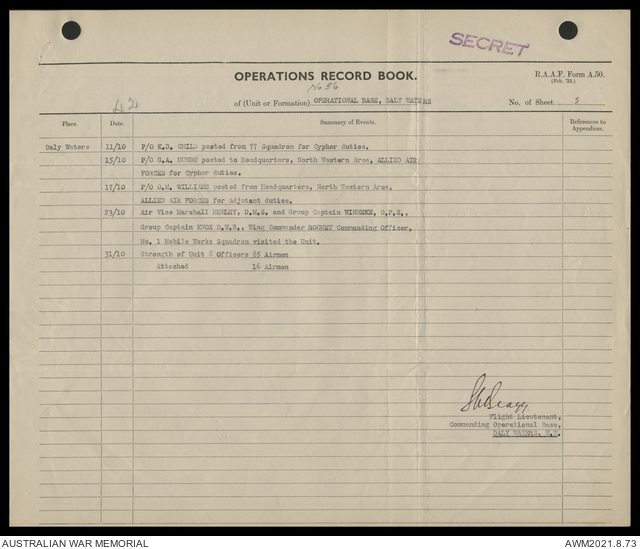 SECRET
OPERATIONS RECORD BOOK.
R.A.A.F. Form A.50.
(Feb. '38.)
No 56
of (Unit or Formation) OPERATIONAL BASE, DALY WATERS
No. of Sheet 5
42
Place. Date. Summary of Events. References to Appendices.
Daly Waters 11/10 P/O K.D. CHILD posted from 77 Squadron for Cypher duties.
15/10 P/O G.A. MUNRO posted to Headquarters, North Western Area, ALLIED AIR
FORCES for Cypher duties.
17/10 P/O O.M. WILLIAMS posted from Headquarters, North Western Area,
ALLIED AIR FORCES for Adjutant duties.
23/10 Air Vice Marshall HURLEY, D.M.S. and Group Captain D.P.S.,
Group Captain KNOX D.W.B., Wing Commander ROONEY Commanding Officer,
No. 1 Mobile Works Squadron visited the Unit.
31/10 Strength of Unit 8 Officers 85 Airmen
Attached 16 Airmen
Flight Lieutenant,
Commanding Operational Base,
DALY WATERS, N.T.
AUSTRALIAN WAR MEMORIAL
AWM2021.8.73